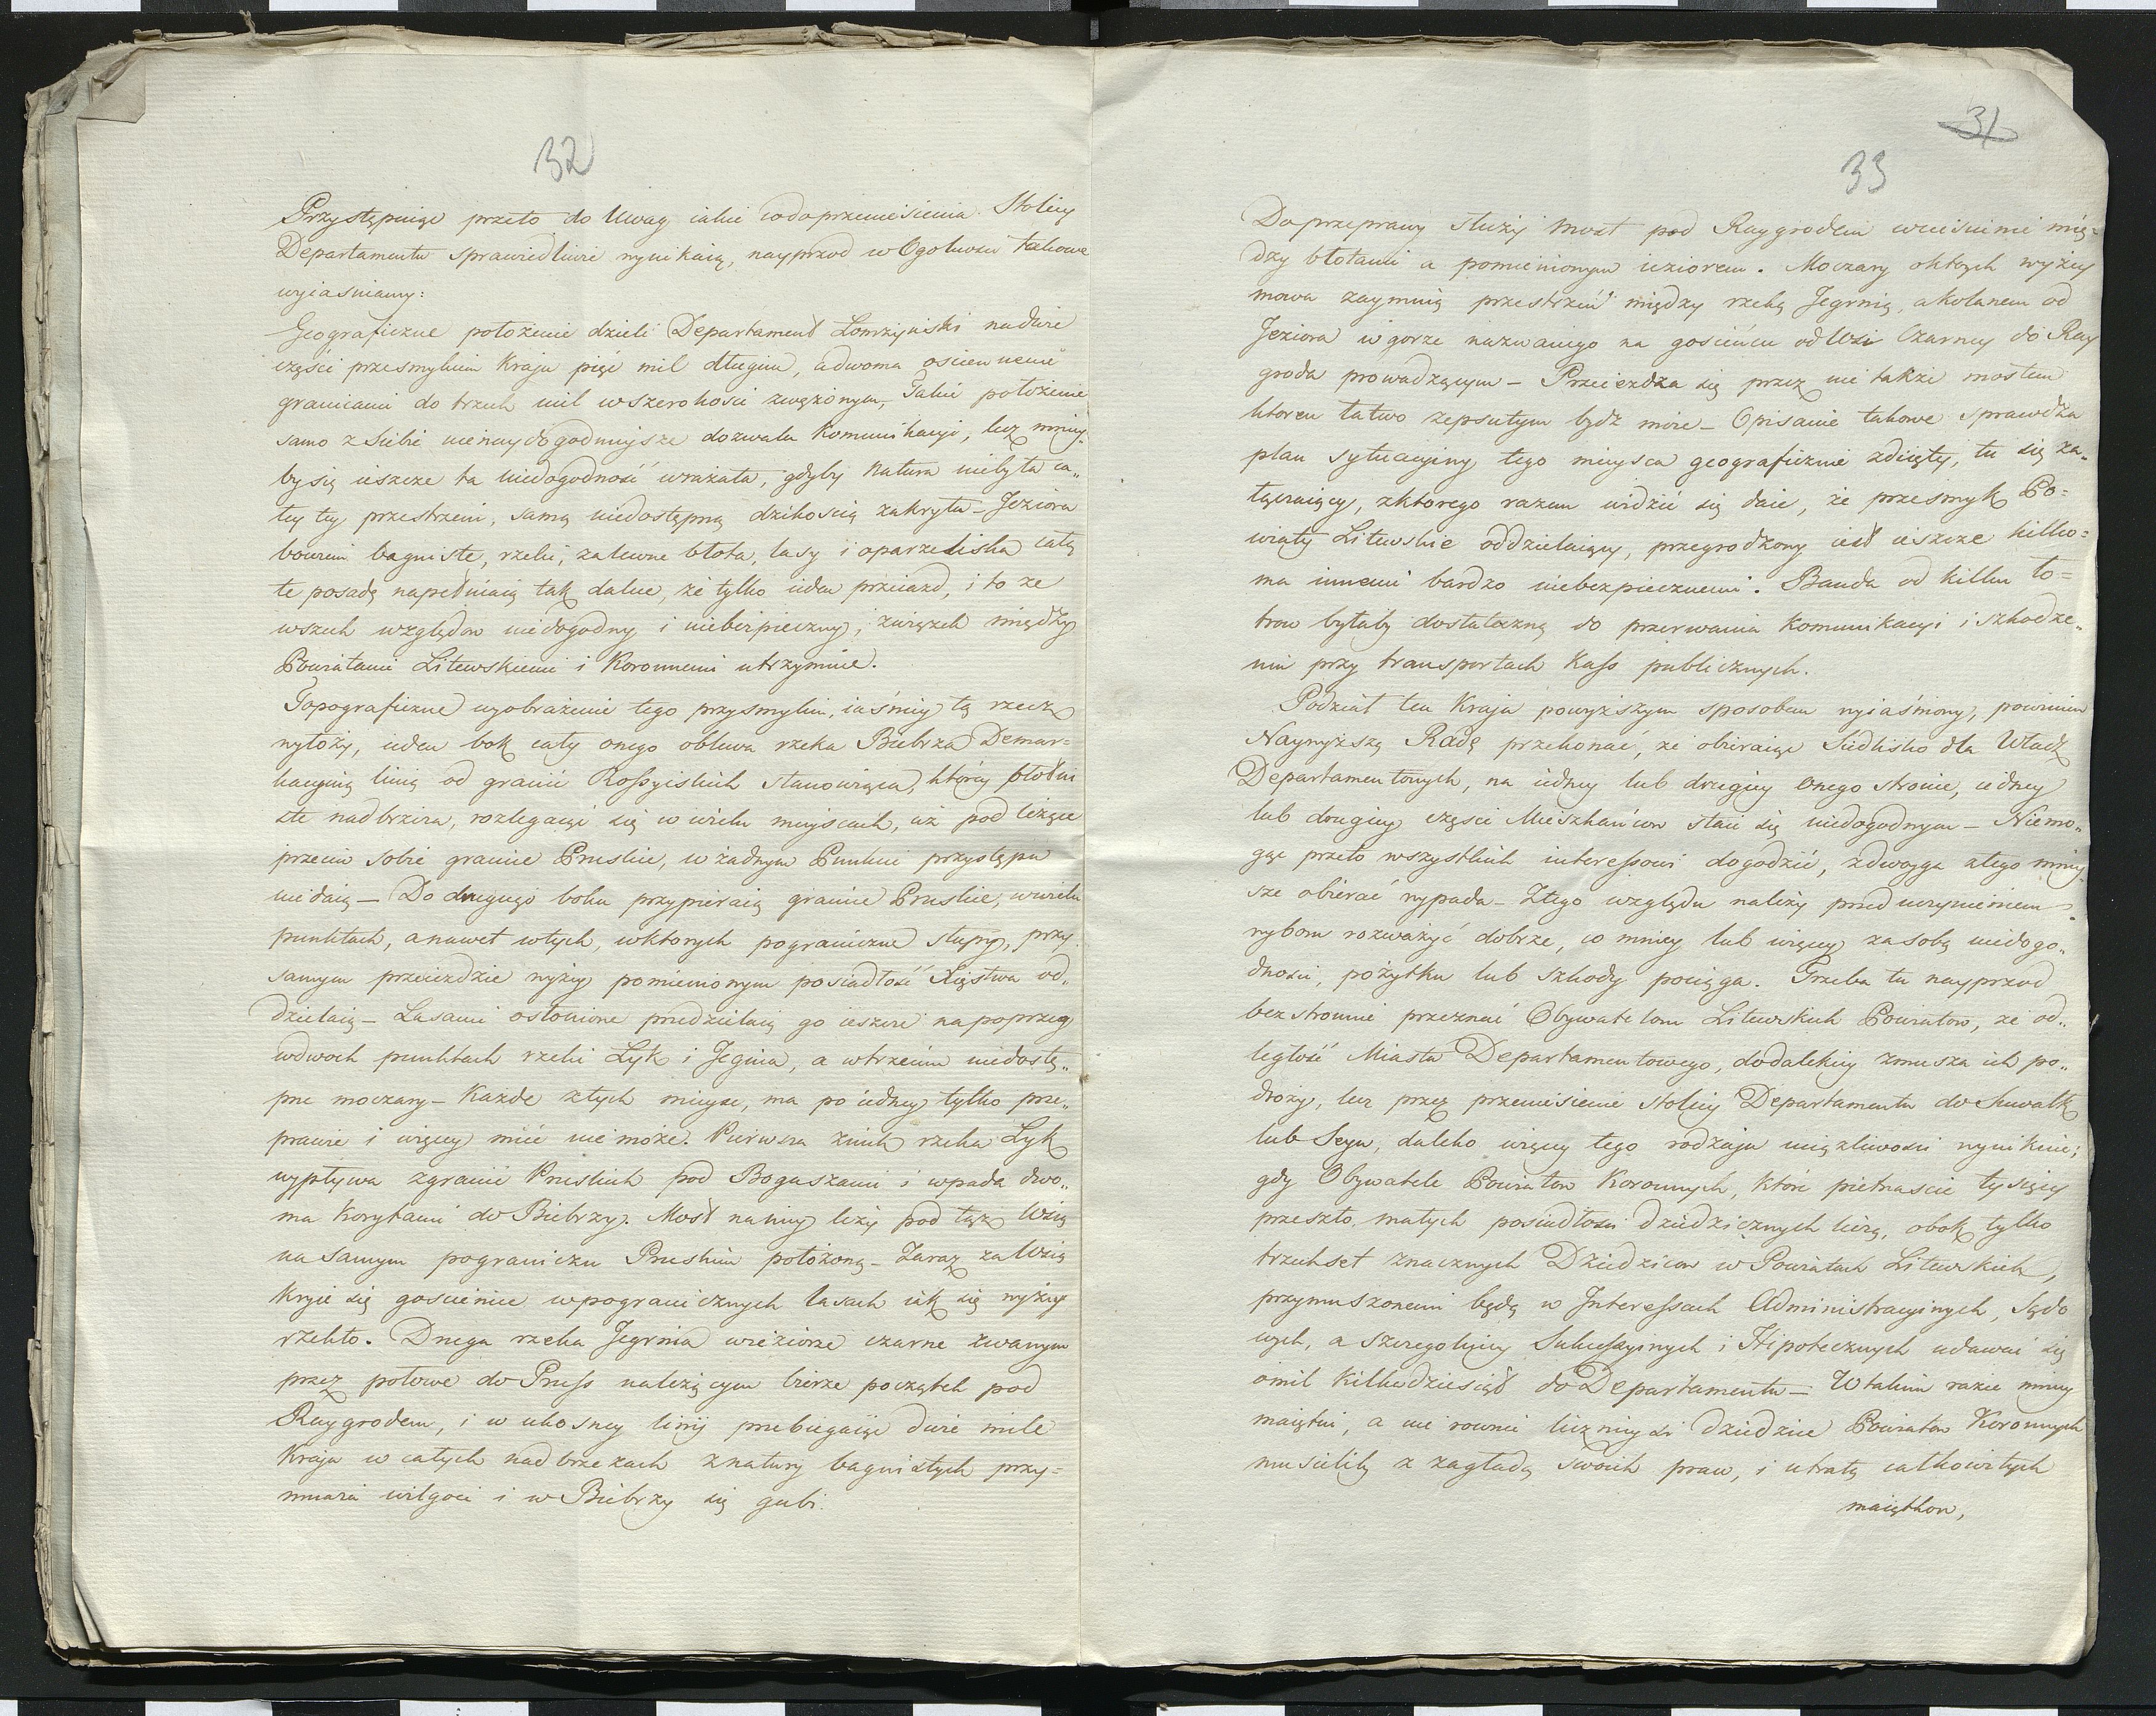 32
Przystępuiąc przeto do Uwag iakie codoprzeniesienia Stolicy
Departamentu sprawiedliwie wynikaią, nayprzod w Ogolności takowe
wyiasniamy:
Geograficzne położenie dzieli Departament Łomżyński nadwie
części przesmykiem Kraju pięć mil długim, adwoma osciennemi
granicami do trzech mil wszerokości zwężonym, Takie położenie
samo z siebie nienaydogodnieysze dozwala Kommunikacyi, lecz mniey
by się ieszcze ta niedogodność wrażała, gdyby Natura niebyła ca„
łey tey przestrzeni, samą niedostępną dzikością zakryła – Jeziora
bowiem bagniste, rzeki, zalewne błota, lasy i oparzeliska całą
te posadę napełniaią tak dalece, że tylko ieden przeiazd, i to ze
wszech względow niedogodny i niebezpieczny, związek między
Powiatami Litewskiemi i Koronnemi utrzymuie.
Topograficzne wyobrażenie tego przysmyku, iaśniey tą rzecz
wyłoży, ieden bok cały onego oblewa rzeka Biebrza Demar=
kacyiną linią od granic Rossyiskich stanowiąca, ktorey błotni
ste nadbrzeża, rozlegaiąc się w wielu mieyscach, aż pod leżące
przeciw sobie granice Pruskie, w żadnym Punkcie przystępu
nie daią – Do drugiego boku przypieraią granice Pruskie, wwielu
punktach, a nawet wtych, wktorych pograniczne słupy, przy
samym przeiezdzie wyżey pomienionym posiadłość Xięstwa od„
dzielaią – Lasami osłonione przedzielaią go ieszcze napoprzeg
wdwoch punktach rzeki Łyk i Jegnia, a wtrzecim niedostę„
pne moczary – Każde ztych mieysc, ma po iedney tylko prze„
prawie i więcey mieć nie może. Pierwsza znich rzeka Łyk
wypływa zgranic Pruskich pod Boguszami i wpada dwo„
ma Korytami do Biebrzy. Most naniey leży pod tąż Wsią
na samym pograniczu Pruskim położoną – Zaraz za Wsią
Kryie się gościeniec wpogranicznych lasach iak się wyżey
rzekło. Druga rzeka Jegrnia wieziorze czarne zwanym
przez połowę do Pruss należącym bierze początek pod
Raygrodem, i w ukosney linij przebiegaiąc dwie mile
Kraju w całych nadbrzeżach znatury bagnistych przy=
mnaża wilgoci i w Biebrzy się gubi.
31
33
Do przeprawy służy Most pod Raygrodem wcieśninie mię=
dzy błotami a pomienionym ieziorem. Moczary oktorych wyżey
mowa zaymuią przestrzeń między rzeką Jegrnią, akolanem od
Jeziora w gorze nazwanego na gościńcu od Wsi Czarney do Ray
groda prowadzącym – Przeiezdza się przez nie także mostem
ktoren łatwo zepsutym bydz może – Opisanie takowe sprawdza
plan sytuacyiny tego mieysca geograficznie zdięty, tu się za„
łączaiący, zktorego razem widzieć się daie, że przesmyk Po=
wiaty Litewskie oddzielaiący, przegrodzony iest ieszcze kilko=
ma innemi bardzo niebezpiecznemi. Banda od kilku ło=
trow byłaby dostateczną do przerwania Kommunikacyi i szkodze„
niu przy transportach Kass publicznych.
Podział ten Kraju powyższym sposobem wyiaśniony, powinien
Naywyższą Radę przekonać, że obieraiąc Siedlisko dla Władz
Departamentowych, na iedney lub drugiey onego stronie, iedney
lub drugiey części Mieszkańcow stać się niedogodnym – Niemo„
gąc przeto wszystkich interessowi dogodzić, zdwoyga złego mniey
sze obierać wypada – Ztego względu należy przed uczynieniem
wyboru rozważyć dobrze, co mniey lub więcey za sobą niedogo„
dności, pożytku lub szkody pociąga. Trzeba tu nayprzod
bezstronnie przeznać Obywatelom Litewskich Powiatow, że od„
ległość Miasta Departamentowego, dodalekiey zmusza ich po„
droży, lecz przez przeniesienie stolicy Departamentu do Suwałk
lub Seyn, daleko więcey tego rodzaju uciązliwości wyniknie;
gdy Obywatele Powiatow Koronnych, ktore pietnaście tysięcy
przeszło małych posiadłości dziedzicznych liczą, obok tylko
trzechset znacznych Dziedzicow w Powiatach Litewskich,
przymuszonemi będą w Interessach Administracyinych, Sądo
wych, a szczegolniey Sukcessyinych i Hipotecznych udawać się
omil Kilkadziesiąt do Departamentu – W takim razie mniey
maiętni, a nie rownie licznieysi dziedzice Powiatow Koronnych
musieliby z zagładą swoich praw, i utratą całkowitych
maiątkow,